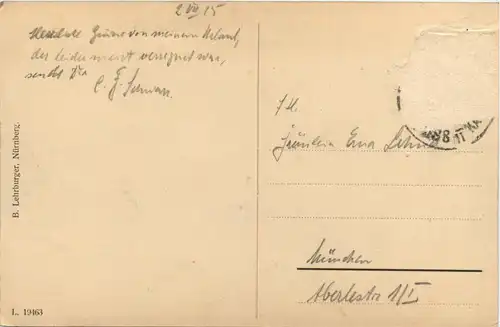 2 VII 15
Herzliche Grüsse von meinem Urlaub,
der leider meist verregnet war,
sendet Ihr
C. F. Schwarz.
Frl.
Fräulein Erna
München
Aberlestr 1/I
B. Lehrburger, Nürnberg.
L. 19463